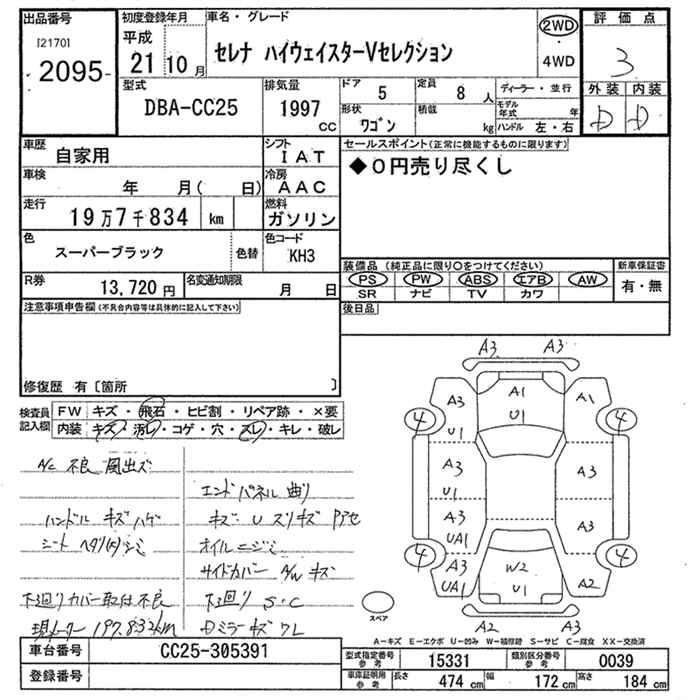 出品番号
[2170]
2095
初度登録年月
平成
21 10 月
車名・グレード
セレナ ハイウェイスターVセレクション
2WD
・
4WD
評価点
3
外装 内装
D D
型式
DBA-CC25
排気量
1997
CC
ドア 5
定員 8 人
形状 ワゴン
積載 kg
ディーラー・並行
モデル年式 年
ハンドル 左・右
車歴 自家用
シフト IAT
車検 年 月( 日)
冷房 AAC
走行 19万7千834 km
燃料 ガソリン
色 スーパーブラック
色替
色コード KH3
R券 13,720 円
名変通知期限 月 日
セールスポイント(正常に機能するものに限ります)
◆0円売り尽くし
装備品(純正品に限り○をつけてください)
PS PW ABS エアB AW
SR ナビ TV カワ
新車保証書
有・無
後日品
注意事項申告欄(不具合内容等は具体的に記入して下さい)
修復歴 有〔箇所 〕
検査員記入欄
FW キズ・飛石・ヒビ割・リペア跡・×要
内装 キズ・汚レ・コゲ・穴・スレ・キレ・破レ
A/C 不良 風出ズ
ハンドル キズ ハゲ
シート ヘタリ シミ
下廻りカバー取付不良
現メーター 197,832km
エンドパネル 曲り
キズ U スリキズ
オイルニジミ
サイドカバー A/W キズ
下廻り S・C
Dミラー キズ ワレ
A3 A3
A3 A1 A1
U1 U1
4 4
A3 A3
U1
A3 A3
UA1
4 4
A3 W2 A2
UA1 U1
A2 A3
スペア
A-キズ E-エクボ U-凹ミ W-補修跡 S-サビ C-腐食 XX-交換済
車台番号 CC25-305391
登録番号
型式指定番号 参考 15331
類別区分番号 参考 0039
車庫証明用 参考 長さ 474 cm 幅 172 cm 高さ 184 cm